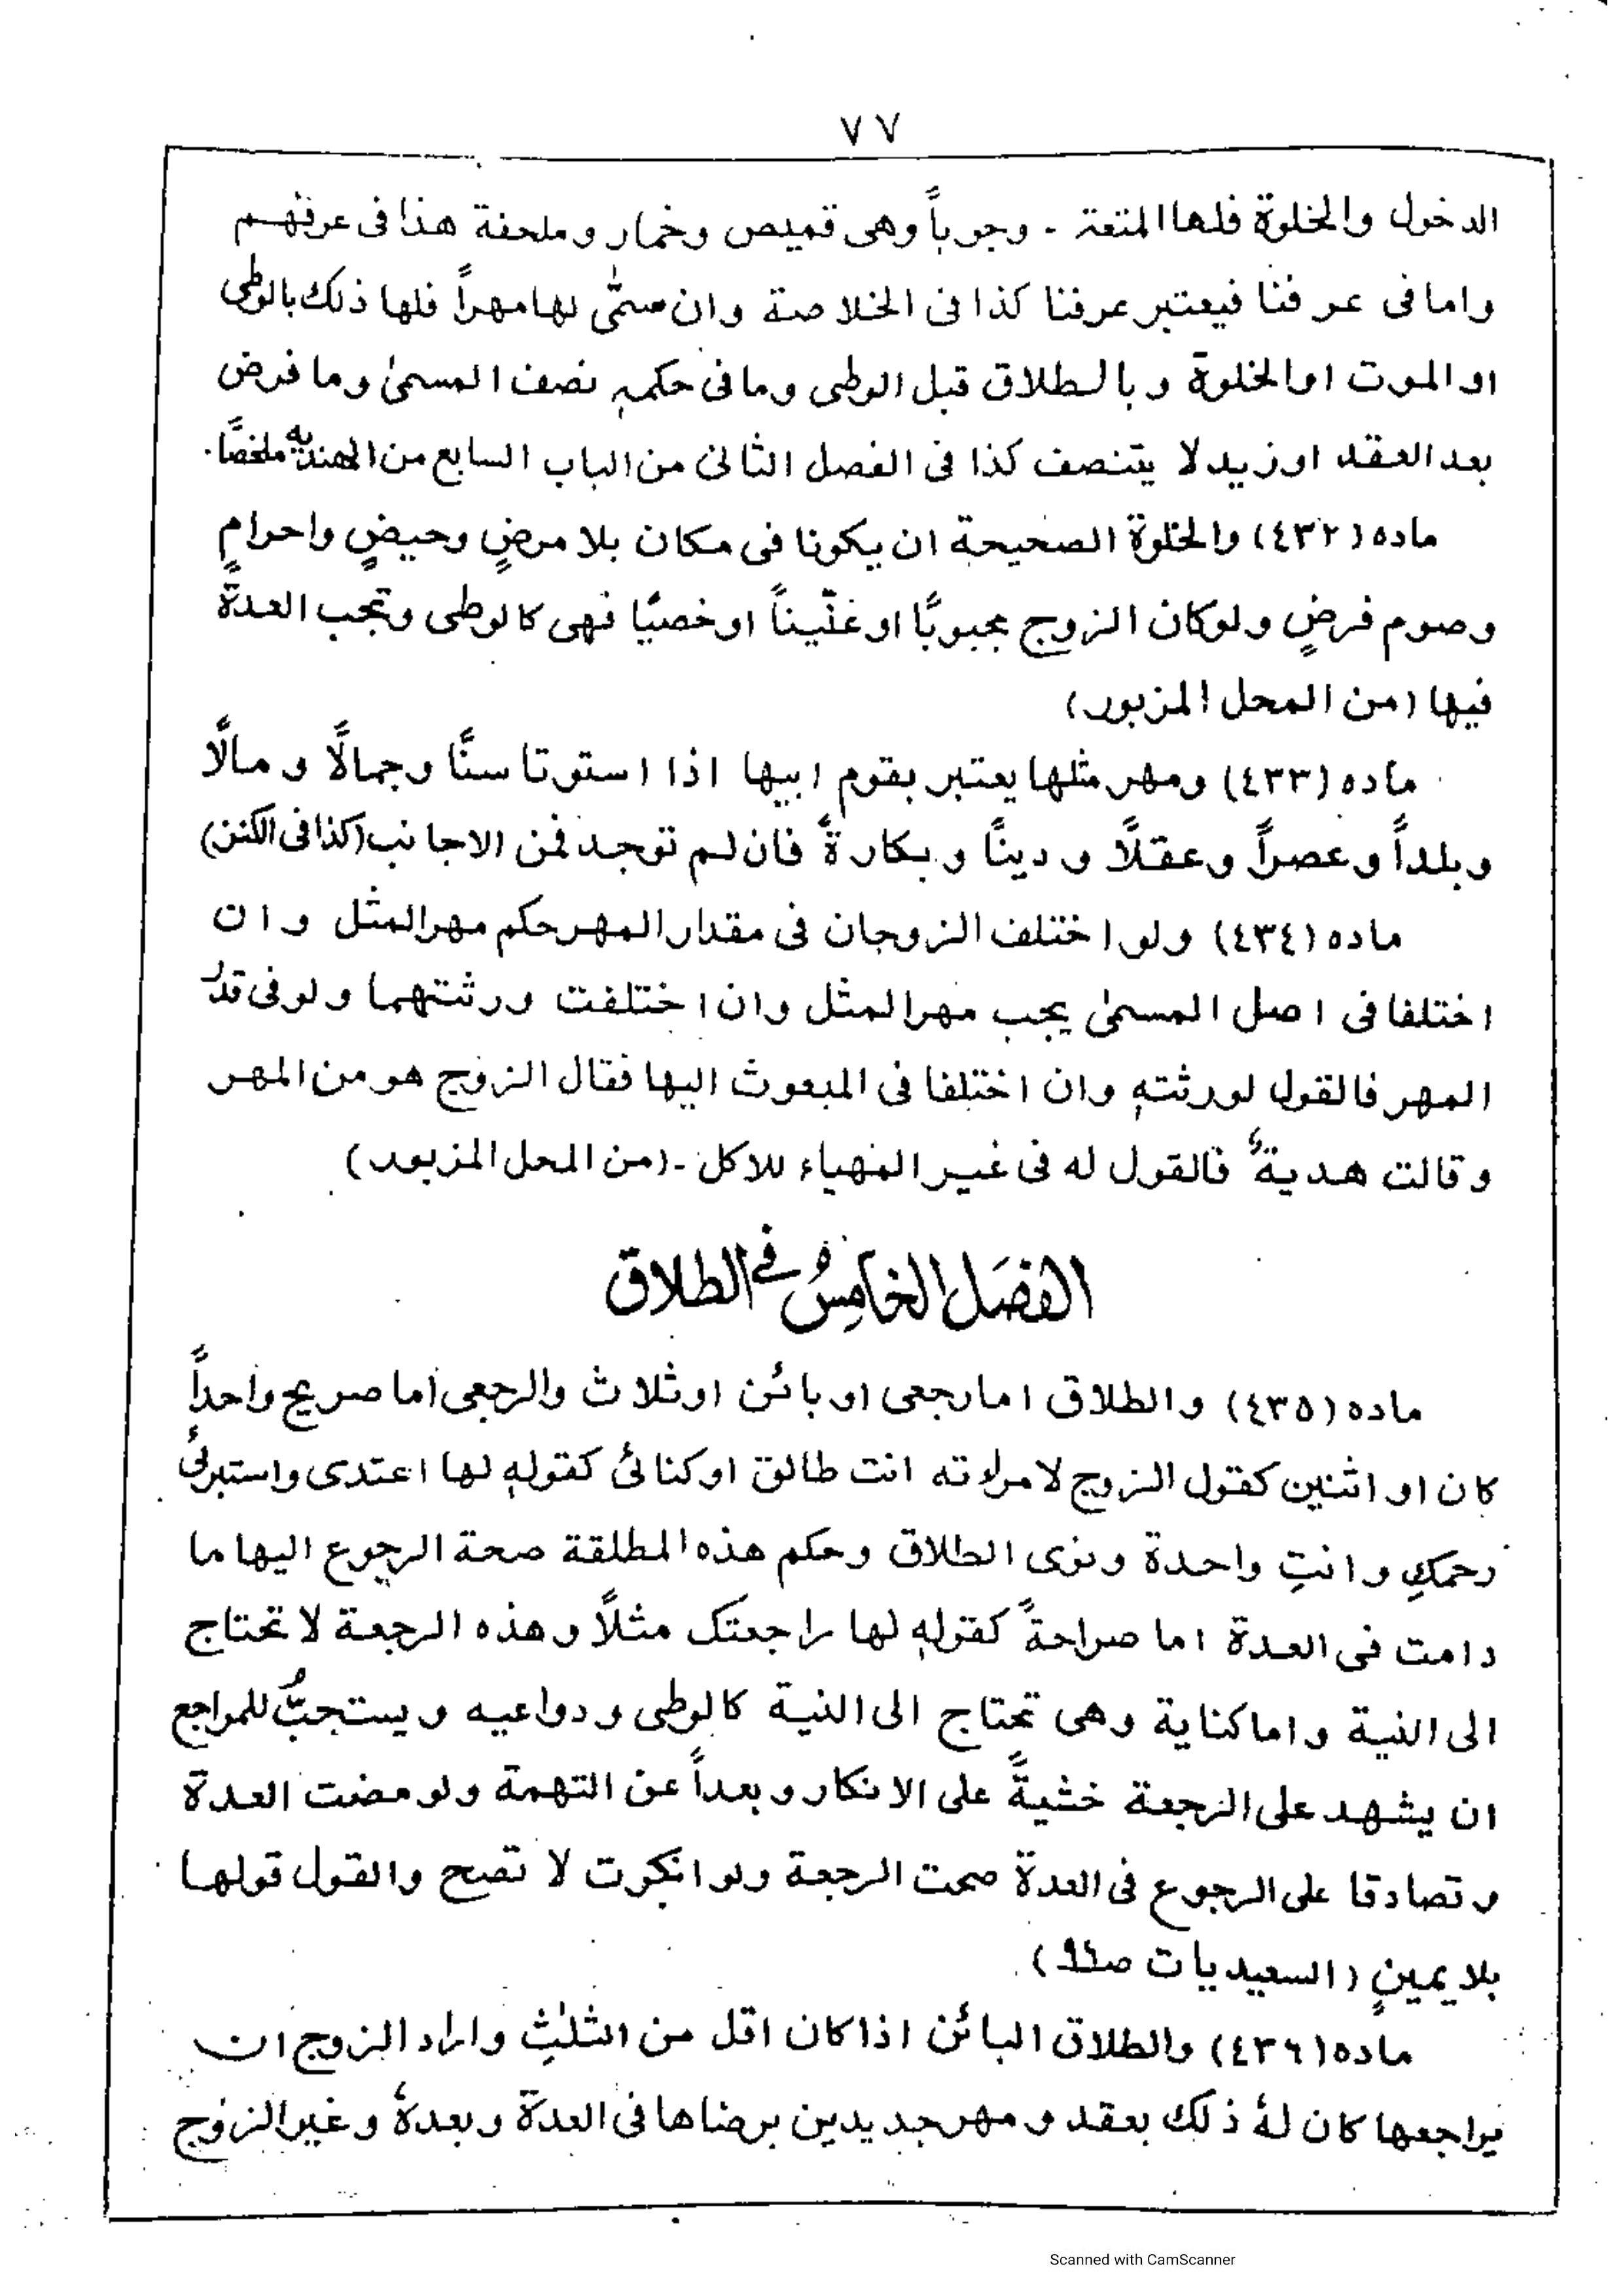 ٧٧
الدخول والخلوة فلها المتعة - وجوباً وهى قميص وخمار وملحفة هذا فى عرفهم
واما فى عرفنا فيعتبر عرفنا كذا فى الخلاصة وان سمّى لها مهراً فلها ذلك بالوطى
او الموت او الخلوة وبالطلاق قبل الوطى وما فى حكمه نصف المسمىٰ وما فرض
بعد العقد او زيد لا يتنصف كذا فى الفصل الثانى من الباب السابع من الهنديه ملخصًا.
ماده (٤٣٢) والخلوة الصحيحة ان يكونا فى مكان بلا مرضٍ وحيضٍ واحرامٍ
وصوم فرضٍ ولو كان الزوج مجبوبًا او عنّيناً او خصيًا فهى كالوطى وتجب العدة
فيها (من المحل المزبور)
ماده (٤٣٣) ومهر مثلها يعتبر بقوم ابيها اذا استوتا سنًّا وجمالًا ومالًا
وبلداً وعصراً وعقلًا ودينًا وبكارةً فان لم توجد فمن الاجانب (كذا فى الكنز)
ماده (٤٣٤) ولو اختلف الزوجان فى مقدار المهر حكم مهر المثل وان
اختلفا فى اصل المسمىٰ يجب مهر المثل وان اختلفت ورثتهما ولو فى قدر
المهر فالقول لورثته وان اختلفا فى المبعوث اليها فقال الزوج هو من المهر
وقالت هديةٌ فالقول له فى غير المهياء للاكل - (من المحل المزبور)
الفصَل الخامِسُ في الطلاق
ماده (٤٣٥) والطلاق اما رجعى او بائن او ثلاث والرجعى اما صريح واحداً
كان او اثنين كقول الزوج لامرأته انت طالق او كنائى كقوله لها اعتدى واستبرئى
رحمكِ وانتِ واحدة ونوى الطلاق وحكم هذه المطلقة صحة الرجوع اليها ما
دامت فى العدة اما صراحةً كقوله لها راجعتك مثلًا وهذه الرجعة لا تحتاج
الى النية واما كناية وهى تحتاج الى النية كالوطى ودواعيه ويستحبُّ للمراجع
ان يشهد على الرجعة خشيةً على الانكار وبعداً عن التهمة ولو مضت العدة
وتصادقا على الرجوع فى العدة صحت الرجعة ولو انكرت لا تصح والقول قولها
بلا يمينٍ (السعيديات ص٩٩)
ماده (٤٣٦) والطلاق البائن اذا كان اقل من الثلٰثِ واراد الزوج ان
يراجعها كان لهٗ ذلك بعقد ومهر جديدين برضاها فى العدة وبعدهٗ وغير الزوج
Scanned with CamScanner